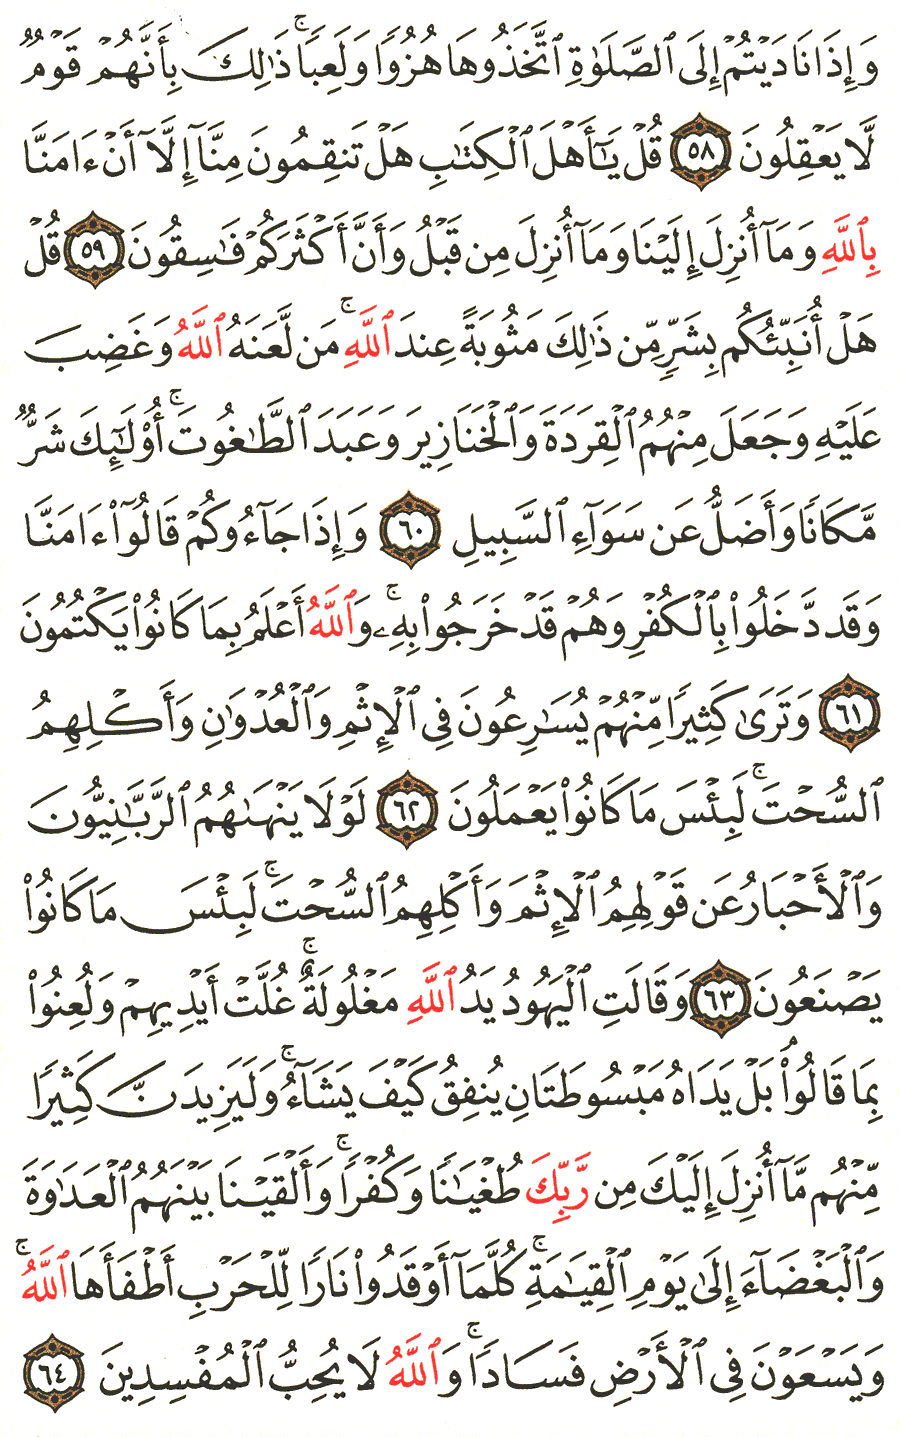 وَإِذَا نَادَيْتُمْ إِلَى ٱلصَّلَوٰةِ ٱتَّخَذُوهَا هُزُوًا وَلَعِبًا ۚ ذَٰلِكَ بِأَنَّهُمْ قَوْمٌ
لَّا يَعْقِلُونَ ٥٨ قُلْ يَـٰٓأَهْلَ ٱلْكِتَـٰبِ هَلْ تَنقِمُونَ مِنَّآ إِلَّآ أَنْ ءَامَنَّا
بِٱللَّهِ وَمَآ أُنزِلَ إِلَيْنَا وَمَآ أُنزِلَ مِن قَبْلُ وَأَنَّ أَكْثَرَكُمْ فَـٰسِقُونَ ٥٩ قُلْ
هَلْ أُنَبِّئُكُم بِشَرٍّ مِّن ذَٰلِكَ مَثُوبَةً عِندَ ٱللَّهِ ۚ مَن لَّعَنَهُ ٱللَّهُ وَغَضِبَ
عَلَيْهِ وَجَعَلَ مِنْهُمُ ٱلْقِرَدَةَ وَٱلْخَنَازِيرَ وَعَبَدَ ٱلطَّـٰغُوتَ ۚ أُو۟لَـٰٓئِكَ شَرٌّ
مَّكَانًا وَأَضَلُّ عَن سَوَآءِ ٱلسَّبِيلِ ٦٠ وَإِذَا جَآءُوكُمْ قَالُوٓا۟ ءَامَنَّا
وَقَد دَّخَلُوا۟ بِٱلْكُفْرِ وَهُمْ قَدْ خَرَجُوا۟ بِهِۦ ۚ وَٱللَّهُ أَعْلَمُ بِمَا كَانُوا۟ يَكْتُمُونَ
٦١ وَتَرَىٰ كَثِيرًا مِّنْهُمْ يُسَـٰرِعُونَ فِى ٱلْإِثْمِ وَٱلْعُدْوَٰنِ وَأَكْلِهِمُ
ٱلسُّحْتَ ۚ لَبِئْسَ مَا كَانُوا۟ يَعْمَلُونَ ٦٢ لَوْلَا يَنْهَىٰهُمُ ٱلرَّبَّـٰنِيُّونَ
وَٱلْأَحْبَارُ عَن قَوْلِهِمُ ٱلْإِثْمَ وَأَكْلِهِمُ ٱلسُّحْتَ ۚ لَبِئْسَ مَا كَانُوا۟
يَصْنَعُونَ ٦٣ وَقَالَتِ ٱلْيَهُودُ يَدُ ٱللَّهِ مَغْلُولَةٌ ۚ غُلَّتْ أَيْدِيهِمْ وَلُعِنُوا۟
بِمَا قَالُوا۟ ۘ بَلْ يَدَاهُ مَبْسُوطَتَانِ يُنفِقُ كَيْفَ يَشَآءُ ۚ وَلَيَزِيدَنَّ كَثِيرًا
مِّنْهُم مَّآ أُنزِلَ إِلَيْكَ مِن رَّبِّكَ طُغْيَـٰنًا وَكُفْرًا ۚ وَأَلْقَيْنَا بَيْنَهُمُ ٱلْعَدَٰوَةَ
وَٱلْبَغْضَآءَ إِلَىٰ يَوْمِ ٱلْقِيَـٰمَةِ ۚ كُلَّمَآ أَوْقَدُوا۟ نَارًا لِّلْحَرْبِ أَطْفَأَهَا ٱللَّهُ ۚ
وَيَسْعَوْنَ فِى ٱلْأَرْضِ فَسَادًا ۚ وَٱللَّهُ لَا يُحِبُّ ٱلْمُفْسِدِينَ ٦٤